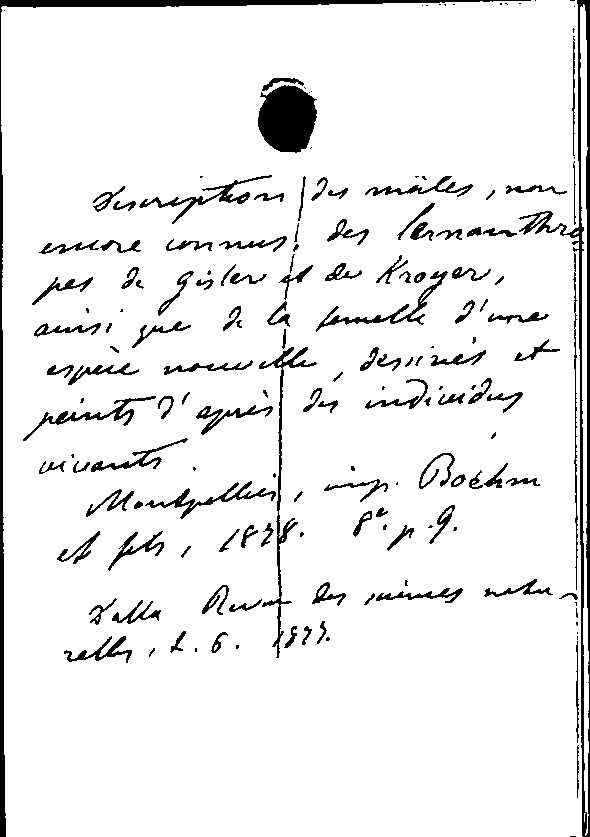 Description des mâles, non
encore connus, des Lernanthro
pes de Gisler et de Kroyer,
ainsi que de la femelle d'une
espèce nouvelle, dessinés et
peints d'après des individus
vivants.
Montpellier, imp. Boéhm
et fils, 1878. 8°. p. 9.
Dalla Revue des sciences natu-
relles, t. 6. 1877.